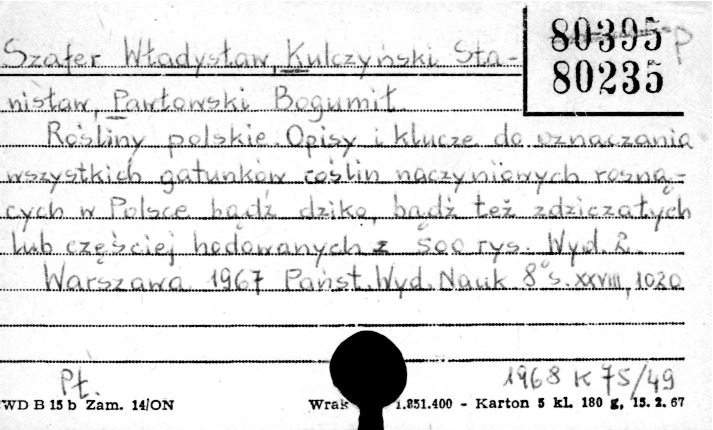 80395 p
80235
Szafer Władysław, Kulczyński Sta-
nisław, Pawłowski Bogumił
Rośliny polskie. Opisy i klucze do oznaczania
wszystkich gatunków roślin naczyniowych rosną-
cych w Polsce bądź dziko, bądź też zdziczałych
lub częściej hodowanych z 500 rys. Wyd. 2.
Warszawa 1967 Państ. Wyd. Nauk 8° s. XXVIII, 1020
Pł.
1968 K 75/49
WD B 15 b Zam. 14/ON Wrak 1.851.400 - Karton 5 kl. 180 g, 15. 2. 67